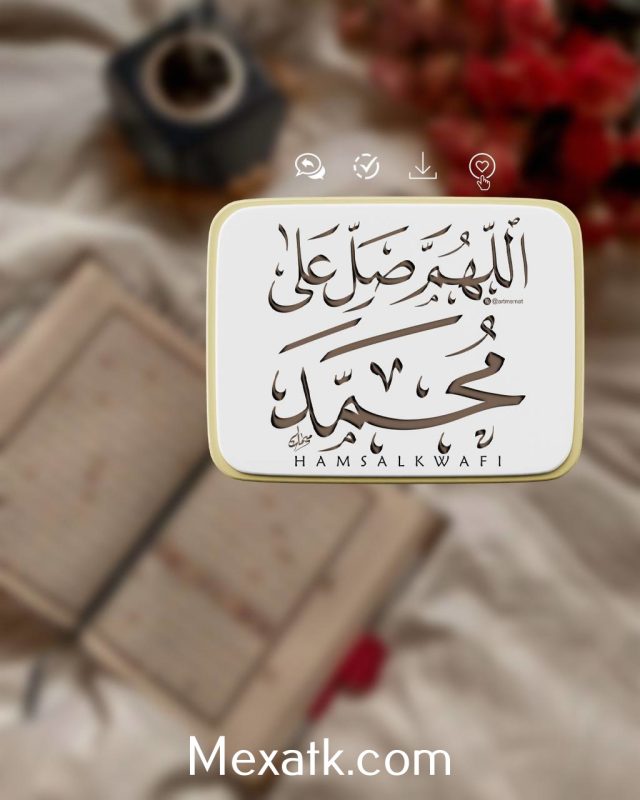 اللّهُمَّ صَلِّ عَلى
@artmemat
مُحَمَّد
HAMSALKWAFI
Mexatk.com